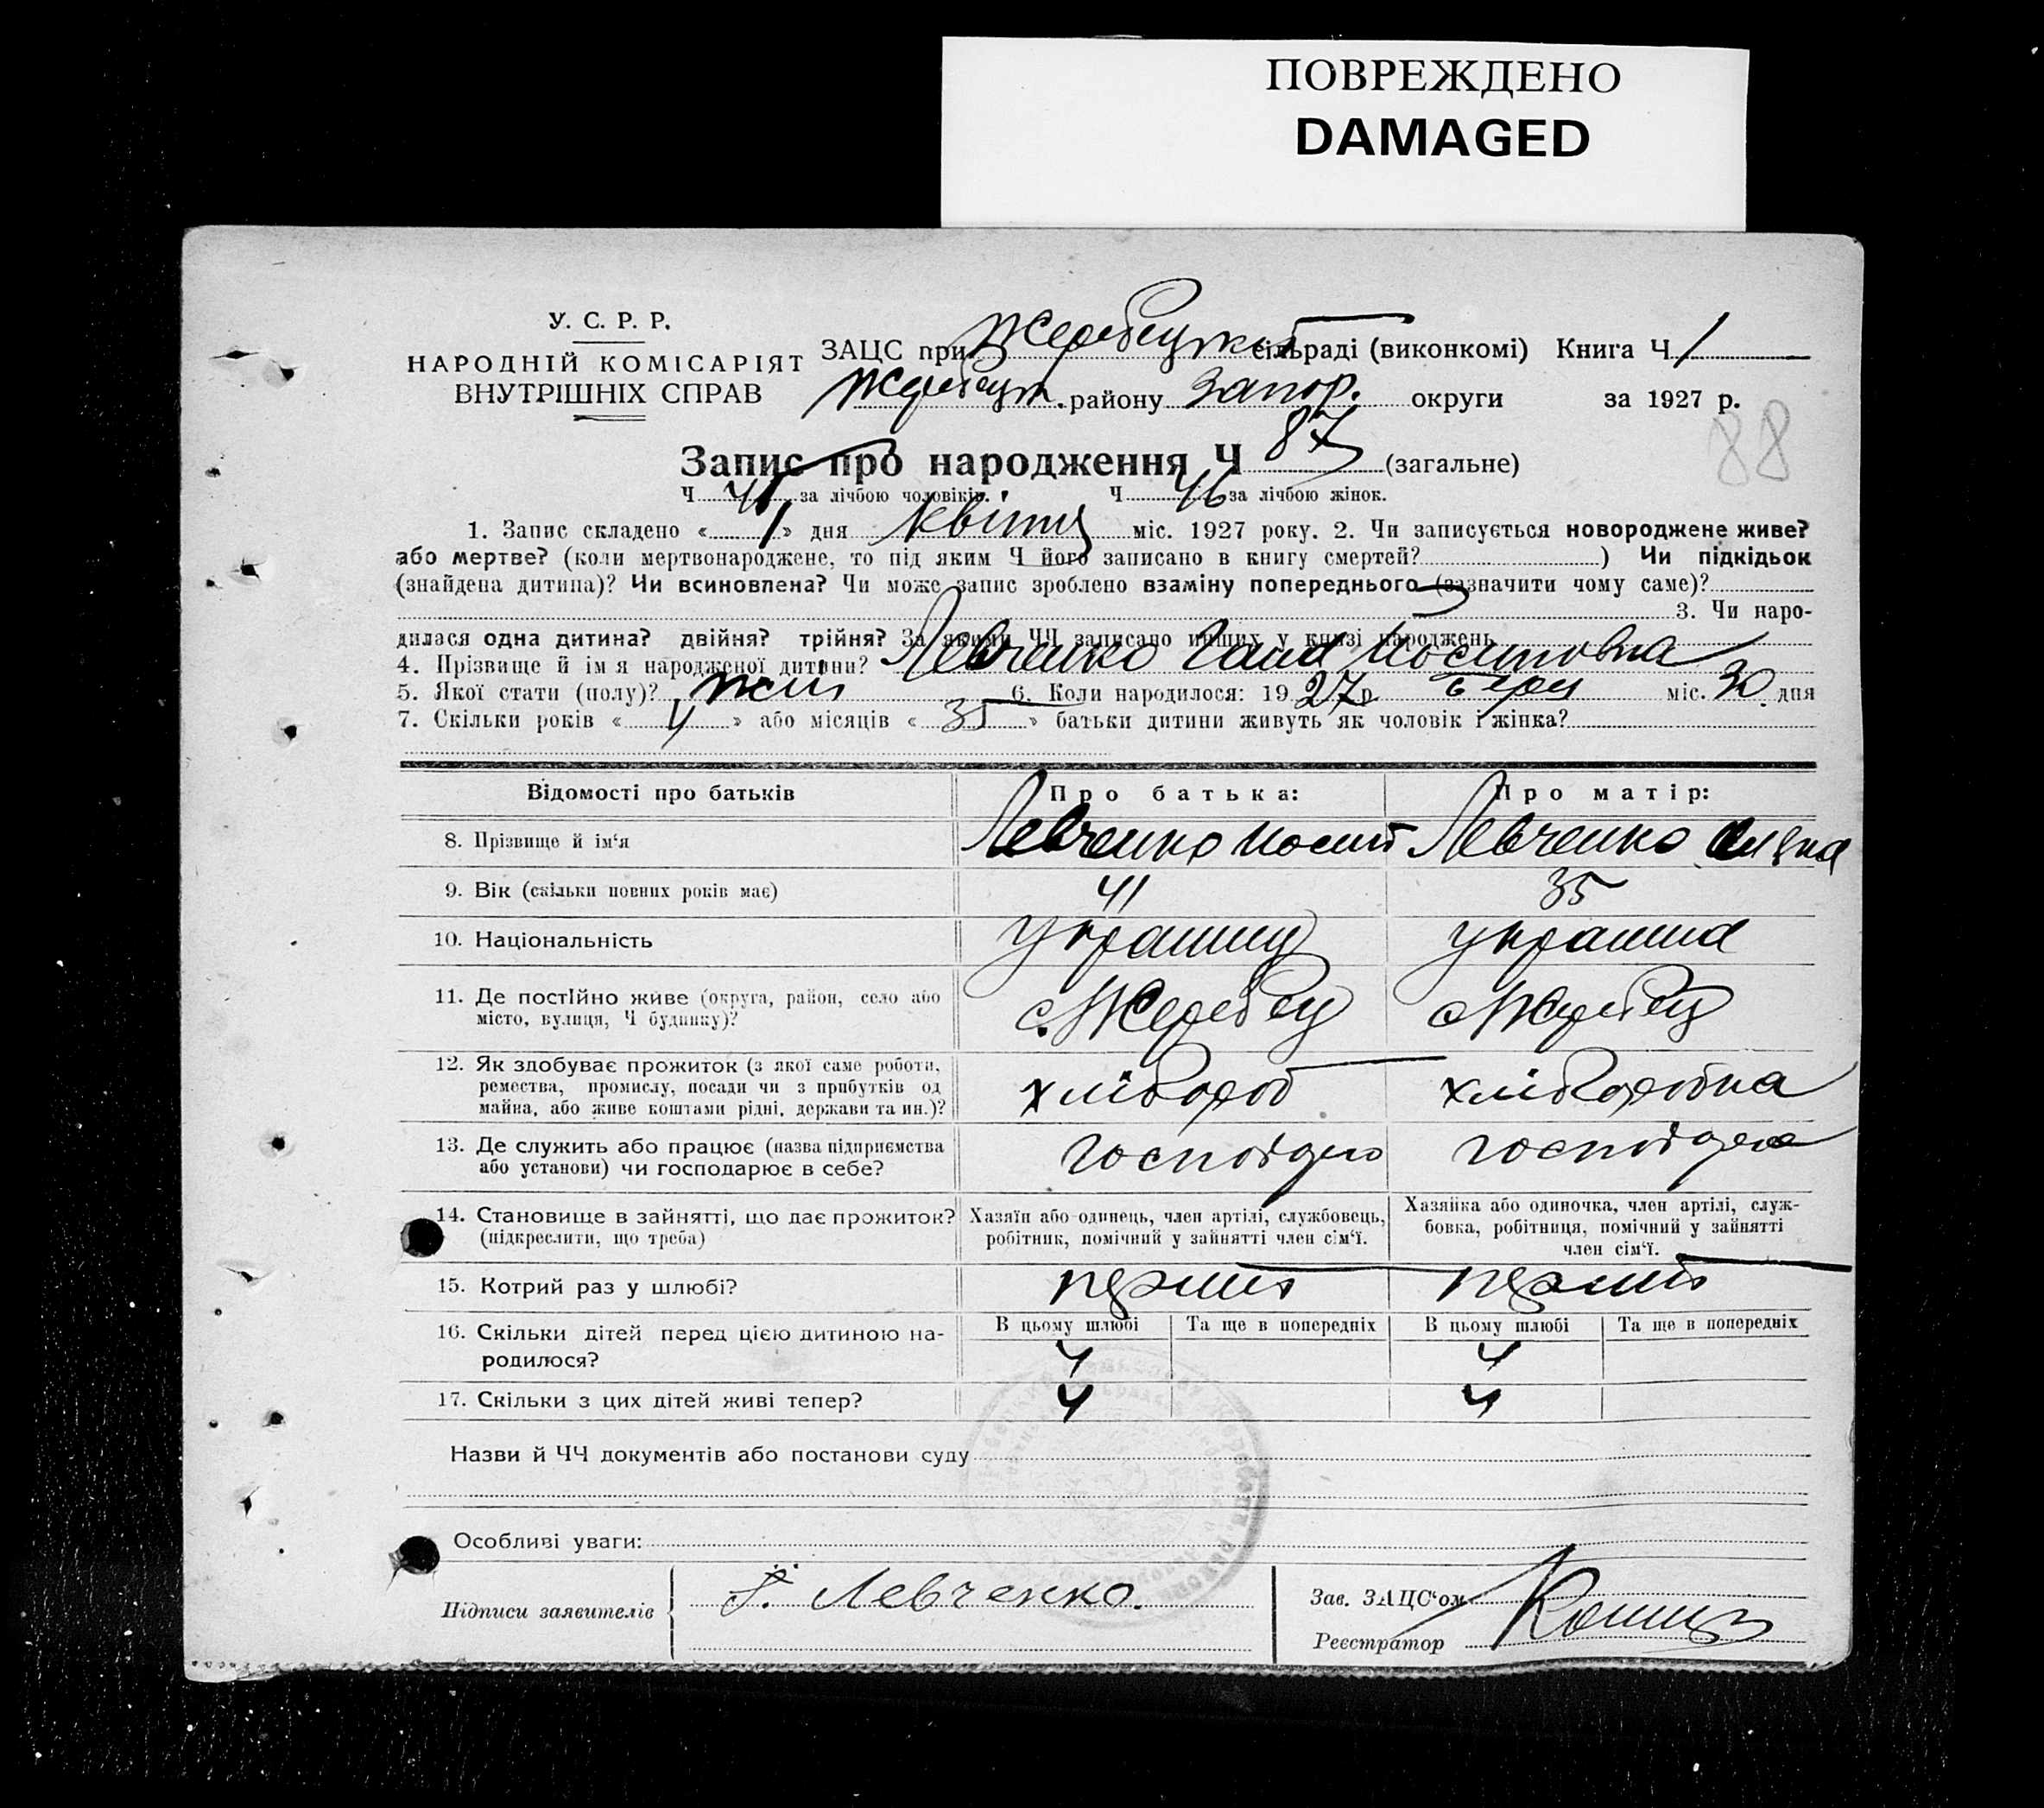 ПОВРЕЖДЕНО
DAMAGED
У. С. Р. Р.
НАРОДНІЙ КОМІСАРІЯТ
ВНУТРІШНІХ СПРАВ
ЗАЦС при Жеребецкій сільраді (виконкомі) Книга Ч 1
Жеребецк. району Запор. округи за 1927 р.
88
Запис про народження Ч 87 (загальне)
Ч 41 за лічбою чоловіків. Ч 46 за лічбою жінок.
1. Запис складено « 1 » дня квітня міс. 1927 року. 2. Чи записується новороджене живе?
або мертве? (коли мертвонароджене, то під яким Ч його записано в книгу смертей? ) Чи підкідьок
(знайдена дитина)? Чи всиновлена? Чи може запис зроблено взаміну попереднього (зазначити чому саме)?
3. Чи наро-
дилася одна дитина? двійня? трійня? За якими ЧЧ записано инших у книзі народжень
4. Прізвище й ім я народженої дитини? Левченко Ганна Йосиповна
5. Якої стати (полу)? жін 6. Коли народилося: 1927 р. берез міс. 30 дня
7. Скільки років « 4 » або місяців « 35 » батьки дитини живуть як чоловік і жінка?
Відомості про батьків Про батька: Про матір:
8. Прізвище й ім'я Левченко Йосип Левченко
9. Вік (скільки повних років має) 41 35
10. Національність Украинц Украинка
11. Де постійно живе (округа, район, село або с. Жеребец с Жеребец
місто, вулиця, Ч будинку)?
12. Як здобуває прожиток (з якої саме роботи,
ремества, промислу, посади чи з прибутків од хлібороб хліборобка
майна, або живе коштами рідні, держави та ин.)?
13. Де служить або працює (назва підприємства
або установи) чи господарює в себе?
14. Становище в зайнятті, що дає прожиток? Хазяїн або одинець, член артілі, службовець, Хазяйка або одиночка, член артілі, служ-
(підкреслити, що треба) робітник, помічний у зайнятті член сім'ї. бовка, робітниця, помічний у зайнятті
член сім'ї.
15. Котрий раз у шлюбі? перший перший
16. Скільки дітей перед цією дитиною на- В цьому шлюбі Та ще в попередніх В цьому шлюбі Та ще в попередніх
родилося? 4 4
17. Скільки з цих дітей живі тепер? 4 4
Назви й ЧЧ документів або постанови суду
Особливі уваги:
Підписи заявителів Й. Левченко. Зав. ЗАЦС'ом
Реєстратор